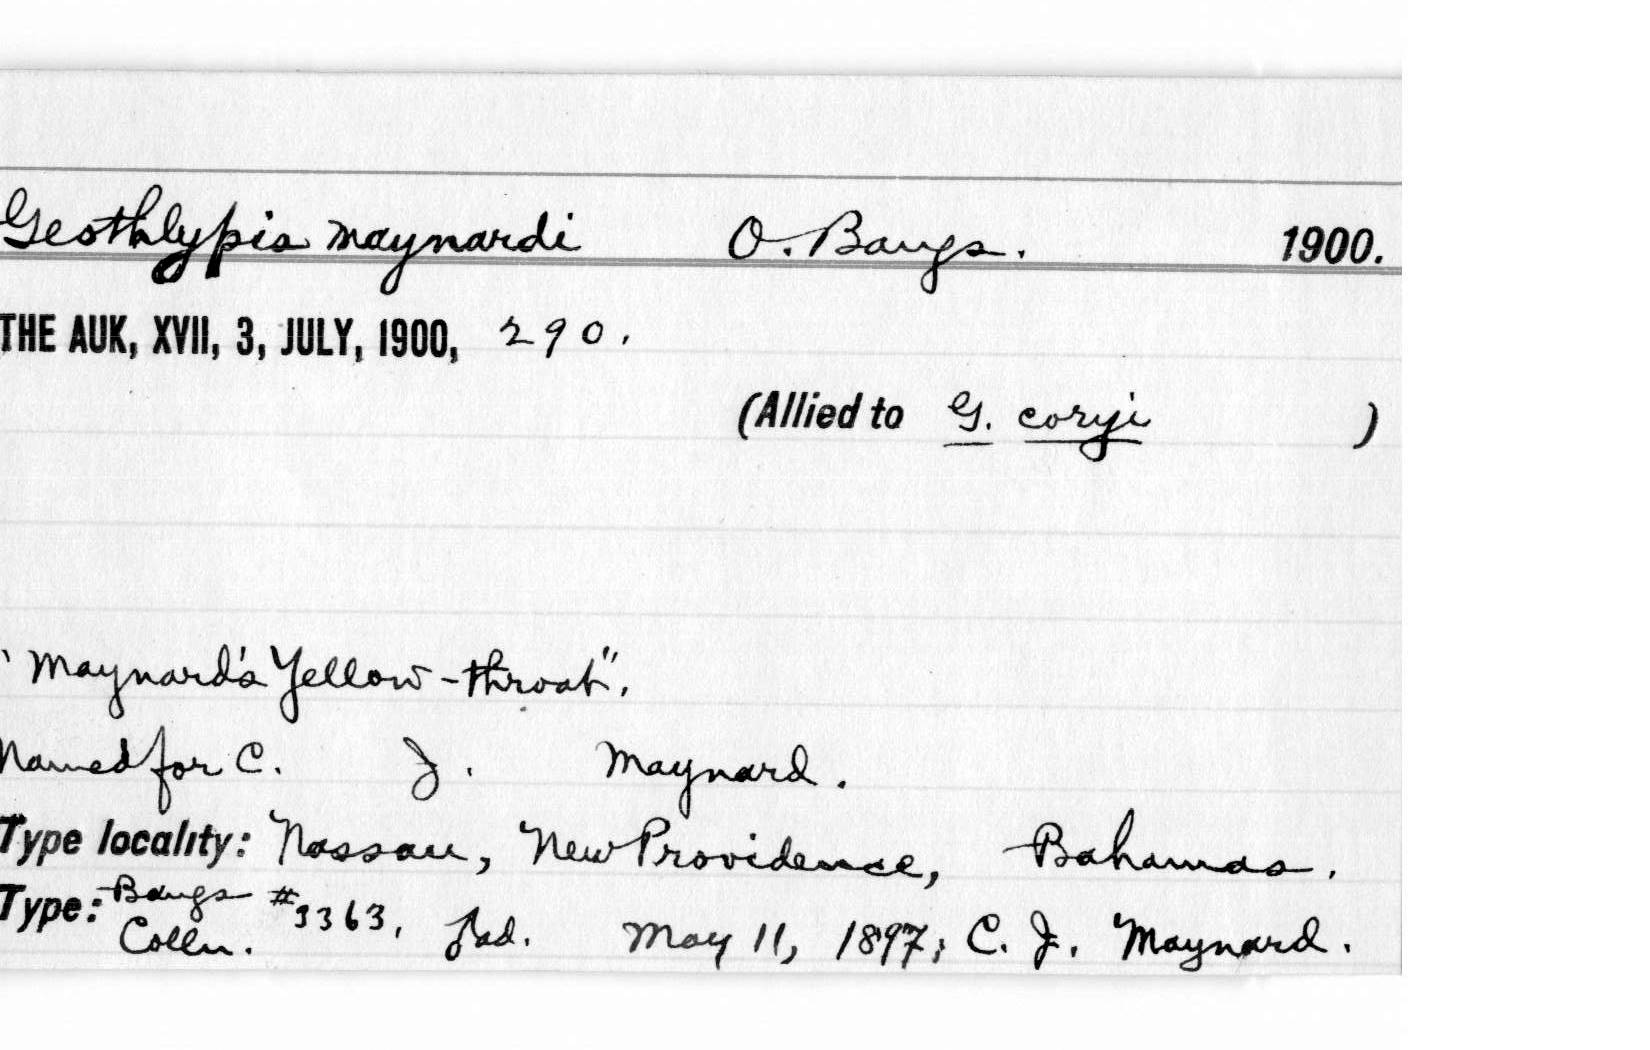 Geothlypis maynardi O. Bangs. 1900.
THE AUK, XVII, 3, JULY, 1900, 290.
(Allied to G. coryi )
"Maynard's Yellow-throat".
Named for C. J. Maynard.
Type locality: Nassau, New Providence, Bahamas.
Type: Bangs Colln. #3363, ad. May 11, 1897; C. J. Maynard.